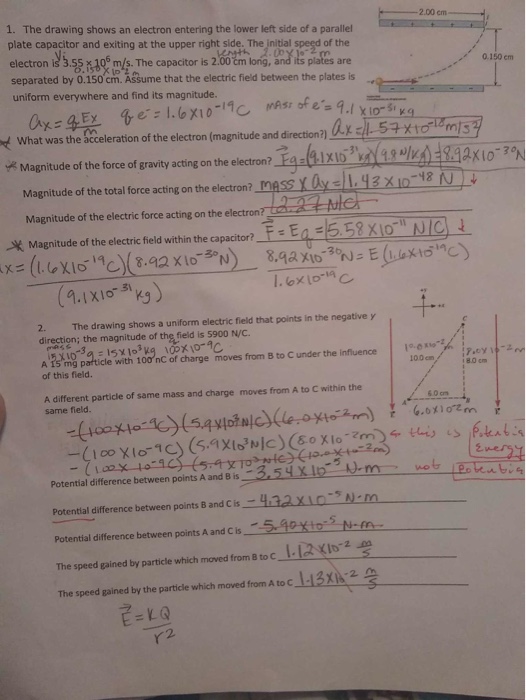 1. The drawing shows an electron entering the lower left side of a parallel
2.00 cm
plate capacitor and exiting at the upper right side. The initial speed of the
Vi length 2.00 x 10⁻² m
electron is 3.55 x 10⁶ m/s. The capacitor is 2.00 cm long, and its plates are
0.150 x 10⁻² m
0.150 cm
separated by 0.150 cm. Assume that the electric field between the plates is
uniform everywhere and find its magnitude.
ax = qEx/m q e⁻ = 1.6x10⁻¹⁹C mass of e⁻ = 9.1 x10⁻³¹ kg
What was the acceleration of the electron (magnitude and direction?) ax = 1.57x10⁻¹⁸ m/s²
Magnitude of the force of gravity acting on the electron? Fg = (9.1x10⁻³¹ kg)(9.8 N/kg) = 8.92x10⁻³⁰ N
Magnitude of the total force acting on the electron? mass x ay = 1.43 x 10⁻⁴⁸ N ↓
Magnitude of the electric force acting on the electron? 2.27 N/C
Magnitude of the electric field within the capacitor? F = Eq = 5.58x10⁻¹¹ N/C ↓
x = (1.6x10⁻¹⁹C)(8.92 x10⁻³⁰N) 8.92x10⁻³⁰N = E(1.6x10⁻¹⁹C)
(9.1x10⁻³¹ kg) 1.6x10⁻¹⁹ C
2. The drawing shows a uniform electric field that points in the negative y
direction; the magnitude of the field is 5900 N/C.
mass q
15x10⁻³g = 15x10³kg 100x10⁻⁹C
A 15 mg particle with 100 nC of charge moves from B to C under the influence
of this field.
10.0 cm
8.0 cm
A different particle of same mass and charge moves from A to C within the
same field.
6.0 cm
A B C
6.0x10⁻²m
-(100x10⁻⁹C)(5.9x10³N/C)(6.0x10⁻²m)
-(100x10⁻⁹C)(5.9x10³N/C)(8.0x10⁻²m) ← this is Potential Energy
-(100x10⁻⁹C)(5.9x10³N/C)(10.0x10⁻²m)
Potential difference between points A and B is -3.54x10⁻⁵ N·m not Potential
Potential difference between points B and C is -4.72x10⁻⁵ N·m
Potential difference between points A and C is -5.90x10⁻⁵ N·m
The speed gained by particle which moved from B to C 1.12x10⁻² m/s
The speed gained by the particle which moved from A to C 1.13x10⁻² m/s
E = KQ
r²